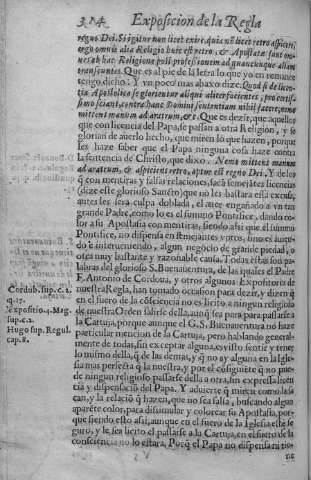 314 Exposicion de la Regla
regno Dei. Si igitur non licet exire, quia nõ licet retro aspicere,
ergo omnis alia Religio huic est retro, & Apostatæ sunt om-
nes ab hac Religione post professionem ad quancunque aliam
transeuntes. Que es al pie de la letra lo que yo en romance
tengo dicho. Y vn poco mas abaxo dize. Quod si de licen-
tia Apostolica se glorientur aliqui aliter facientes, pro certis-
simo sciant, contra hanc Domini sententiam nihil facere, nemo
mittens manum ad aratrum, &c. Que es dezir, que aquellos
que con licencia del Papa, se passan a otra Religion, y se
glorian de auerlo hecho, que miren lo que hazen, porque
les haze saber que el Papa ninguna cosa haze contra
la sentencia de Christo, que dixo. Nemo mittens manum
ad aratrum, & aspiciens retro, aptus est regno Dei. Y de los
q̃ con mentiras y falsas relaciones, facã semejãtes licẽcias
(dize este glorioso Santo) que no les bastara essa escusa,
antes les sera culpa doblada, el auer engañado a vn tan
grande Padre, como lo es el summo Pontifice, dando co-
lor a su Apostasia con mentiras, siendo assi que el summo
Pontifice, no dispensa en semejantes votos, sino es auien-
do e interueniendo, algun negocio de grande piedad, o
otra muy bastante y razonable causa. Todas estas son pa-
labras del glorioso S. Buenauentura, de las quales el Padre
F. Antonio de Cordoua, y otros algunos Expositores de
nuestra Regla, han tomado ocasion para dezir, y dizen q̃
en el fuero de la cõsciencia no es licito a ningun religioso
de nuestra Orden salirse della, aunq̃ sea para para passarse a
la Cartuja, porque aunque el G. S. Buenauentura no haze
particular mencion de la Cartuja, pero hablando general-
mente de todas, sin exceptar alguna, es visto sentir y tener
lo mismo della, q̃ de las demas, y q̃ no ay alguna en la Igle-
sia mas perfecta q̃ la nuestra, y por el cõsiguiẽte q̃ no pue-
de ningun religioso passarse della a otra, sin expressa licen-
cia y dispensaciõ del Papa. Y aduierte q̃ miren como la sa-
can, y la relaciõ q̃ hazen, que no sea falsa, buscando algun
aparẽte color, para dissimular y colorear su Apostasia, por-
que siendo esto assi, aunque en el fuero de la Iglesia este se-
guro, y le sea licito el passarse a la Cartuja, en el fuero de la
consciencia no lo estara. Porq̃ el Papa no dispensa ni tie-
ne
Cordub. sup. c. 2.
q. 17.
Expositio. 4. Mag.
sup. c. 2.
Hugo sup. Regul.
cap. 8.